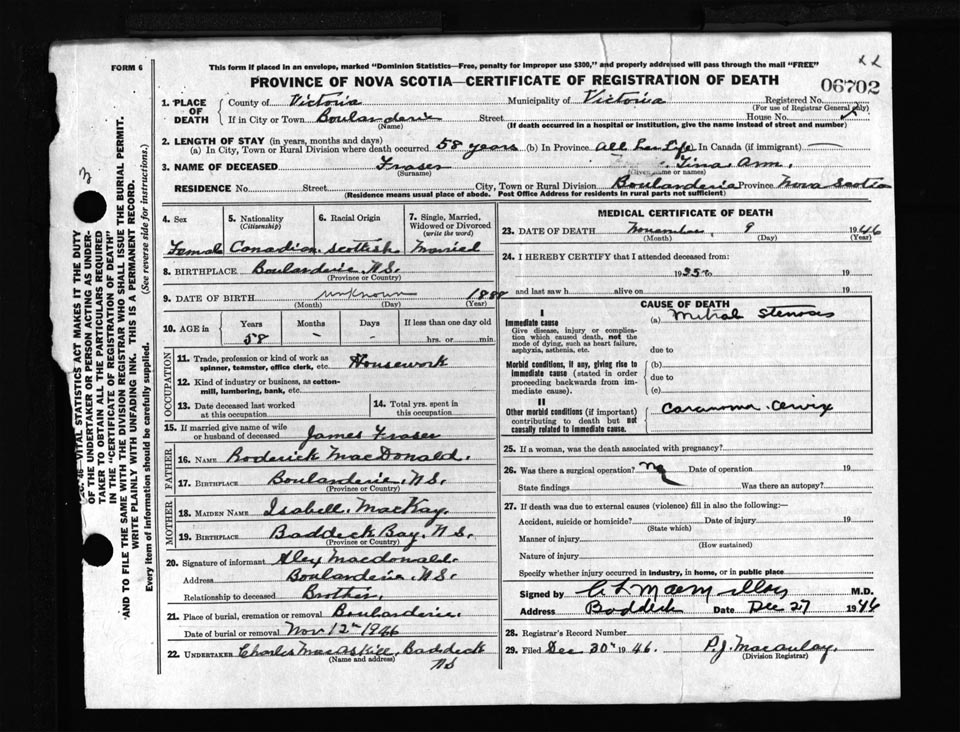 FORM 6
This form if placed in an envelope, marked "Dominion Statistics—Free, penalty for improper use $300," and properly addressed will pass through the mail "FREE"
PROVINCE OF NOVA SCOTIA—CERTIFICATE OF REGISTRATION OF DEATH
06702
1. PLACE OF DEATH County of Victoria Municipality of Victoria Registered No.
(For use of Registrar General only)
If in City or Town Boularderie Street House No.
(Name) (If death occurred in a hospital or institution, give the name instead of street and number)
2. LENGTH OF STAY (in years, months and days)
(a) In City, Town or Rural Division where death occurred 58 years (b) In Province All her Life In Canada (if immigrant)
3. NAME OF DECEASED Fraser Tina Ann.
(Surname) (Given name or names)
RESIDENCE No. Street City, Town or Rural Division Boularderie Province Nova Scotia
(Residence means usual place of abode. Post Office Address for residents in rural parts not sufficient)
4. Sex 5. Nationality (Citizenship) 6. Racial Origin 7. Single, Married, Widowed or Divorced (write the word)
Female Canadian Scottish Married
8. BIRTHPLACE Boularderie N.S.
(Province or Country)
9. DATE OF BIRTH unknown 1888
(Month) (Day) (Year)
10. AGE in Years Months Days If less than one day old
58 - - hrs. or min.
OCCUPATION
11. Trade, profession or kind of work as spinner, teamster, office clerk, etc. Housework
12. Kind of industry or business, as cotton-mill, lumbering, bank, etc.
13. Date deceased last worked at this occupation
14. Total yrs. spent in this occupation
15. If married give name of wife or husband of deceased James Fraser
FATHER
16. NAME Roderick MacDonald.
17. BIRTHPLACE Boularderie N.S.
(Province or Country)
MOTHER
18. MAIDEN NAME Isabell MacKay.
19. BIRTHPLACE Baddeck Bay. N.S.
(Province or Country)
20. Signature of informant Alex Macdonald.
Address Boularderie N.S.
Relationship to deceased Brother.
21. Place of burial, cremation or removal Boularderie.
Date of burial or removal Nov 12th 1946
22. UNDERTAKER Charles MacAskill, Baddeck
(Name and address) NS
MEDICAL CERTIFICATE OF DEATH
23. DATE OF DEATH November 9 1946
(Month) (Day) (Year)
24. I HEREBY CERTIFY that I attended deceased from:
1935 to 19
and last saw h alive on 19
CAUSE OF DEATH
I
Immediate cause (a) Mitral Stenosis
Give disease, injury or complication which caused death, not the mode of dying, such as heart failure, asphyxia, asthenia, etc.
due to
Morbid conditions, if any, giving rise to immediate cause (stated in order proceeding backwards from immediate cause). (b)
due to
(c)
II
Other morbid conditions (if important) contributing to death but not causally related to immediate cause. Carcinoma Cervix
25. If a woman, was the death associated with pregnancy?
26. Was there a surgical operation? No Date of operation 19
State findings Was there an autopsy?
27. If death was due to external causes (violence) fill in also the following:—
Accident, suicide or homicide? Date of injury 19
(State which)
Manner of injury
(How sustained)
Nature of injury
Specify whether injury occurred in industry, in home, or in public place
Signed by M.D.
Address Baddeck Date Dec 27 1946
28. Registrar's Record Number
29. Filed Dec 30th 1946. P.J. Macaulay.
(Division Registrar)
VITAL STATISTICS ACT MAKES IT THE DUTY
OF THE UNDERTAKER OR PERSON ACTING AS UNDER-
TAKER TO OBTAIN ALL THE PARTICULARS REQUIRED
IN THE "CERTIFICATE OF REGISTRATION OF DEATH"
AND TO FILE THE SAME WITH THE DIVISION REGISTRAR WHO SHALL ISSUE THE BURIAL PERMIT.
WRITE PLAINLY WITH UNFADING INK. THIS IS A PERMANENT RECORD.
Every item of information should be carefully supplied. (See reverse side for instructions.)